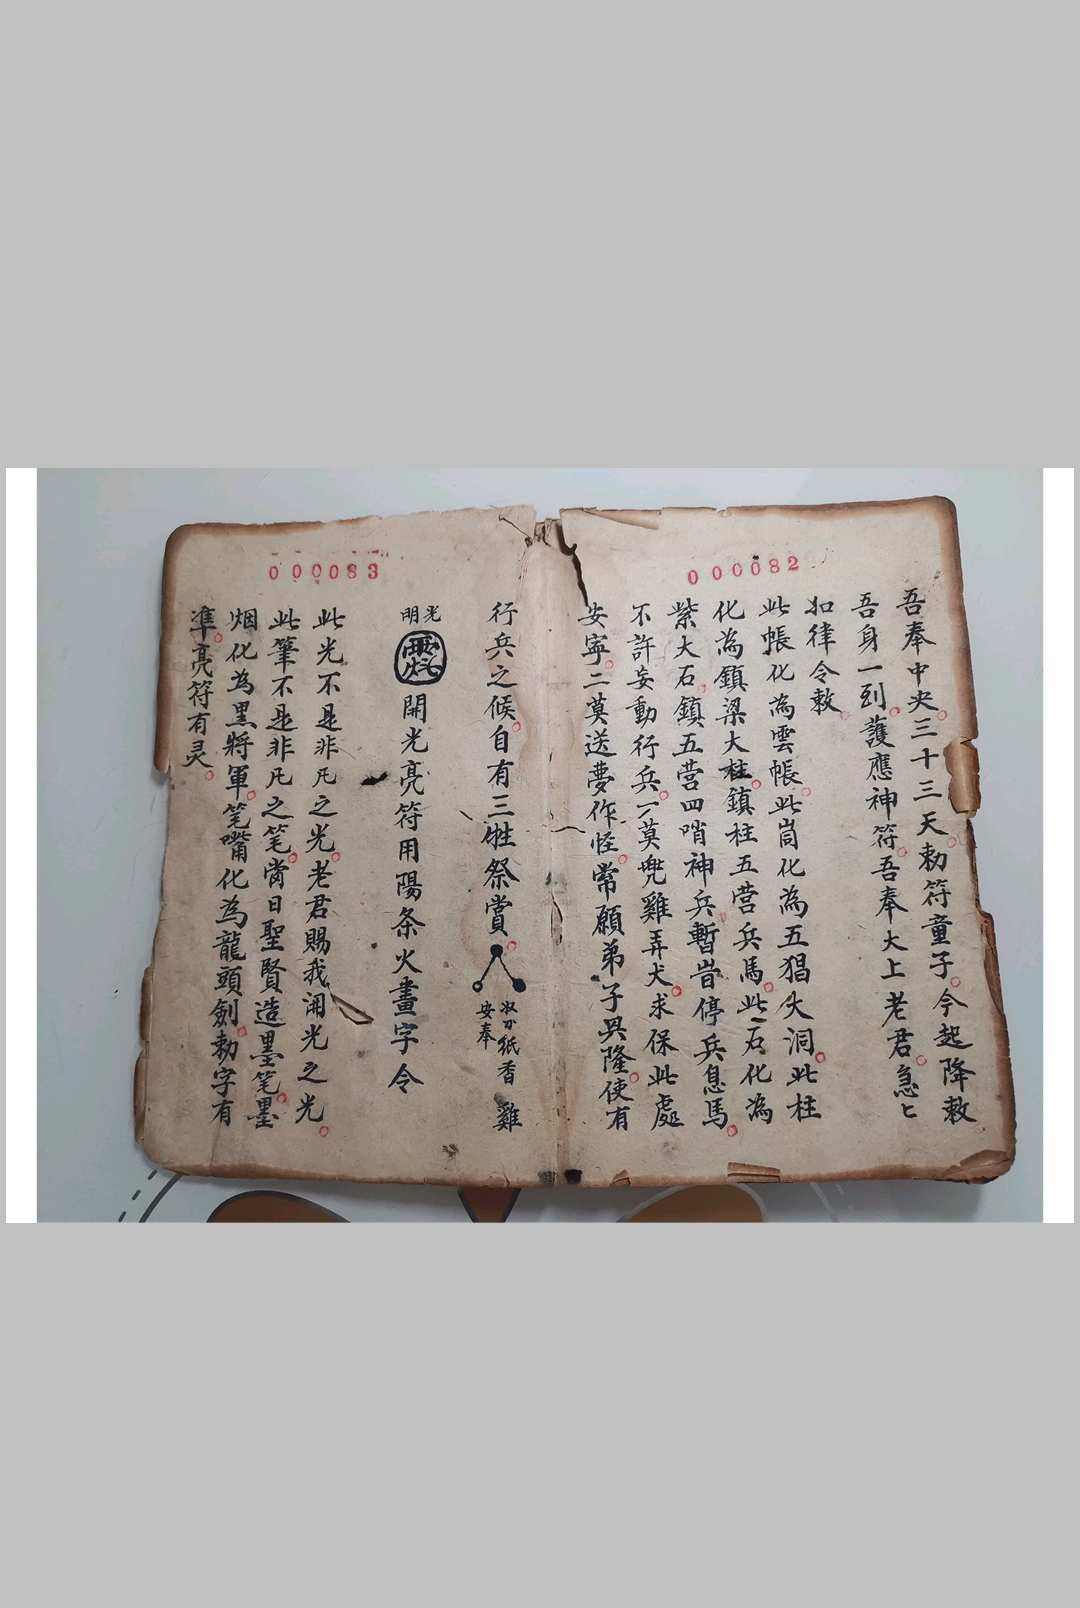 000082
吾奉中央三十三天勅符童子今起降敕
吾身一到護應神符吾奉大上老君急〻
如律令敕
此帳化為雲帳此崗化為五猖大洞此柱
化為鎮梁大柱鎮柱五营兵馬此一石化為
紫大石鎮五营四哨神兵暫旹停兵息馬
不許妄動行兵一莫𠒇雞弄犬求保此處
安寧二莫送夢作怪常願弟子興隆使有
000083
行兵之候自有三牲祭賞
紙香 雞
安奉
光明
開光亮符用陽条火畫字令
此光不是非凡之光老君賜我開光之光
此筆不是非凡之笔當日聖賢造墨笔墨
烟化為黑將軍笔嘴化為龍頭劍勅字有
準亮符有灵